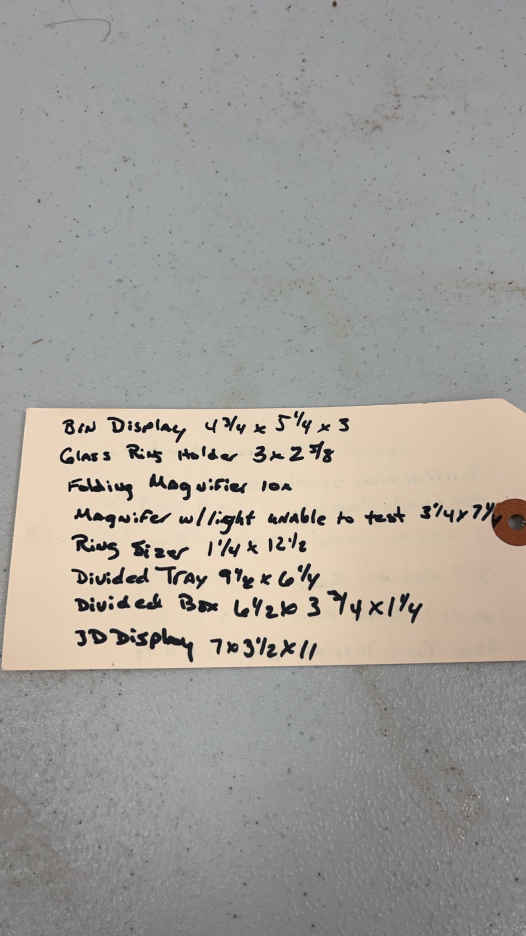 Bin Display 4 3/4 x 5 1/4 x 3
Glass Ring Holder 3 x 2 5/8
Folding Magnifier 10x
Magnifer w/light unable to test 3 1/4 x 7 1/4
Ring Sizer 1 1/4 x 12 1/2
Divided Tray 9 1/2 x 6 1/4
Divided Box 6 1/2 x 3 3/4 x 1 1/4
3D Display 7 x 3 1/2 x 11